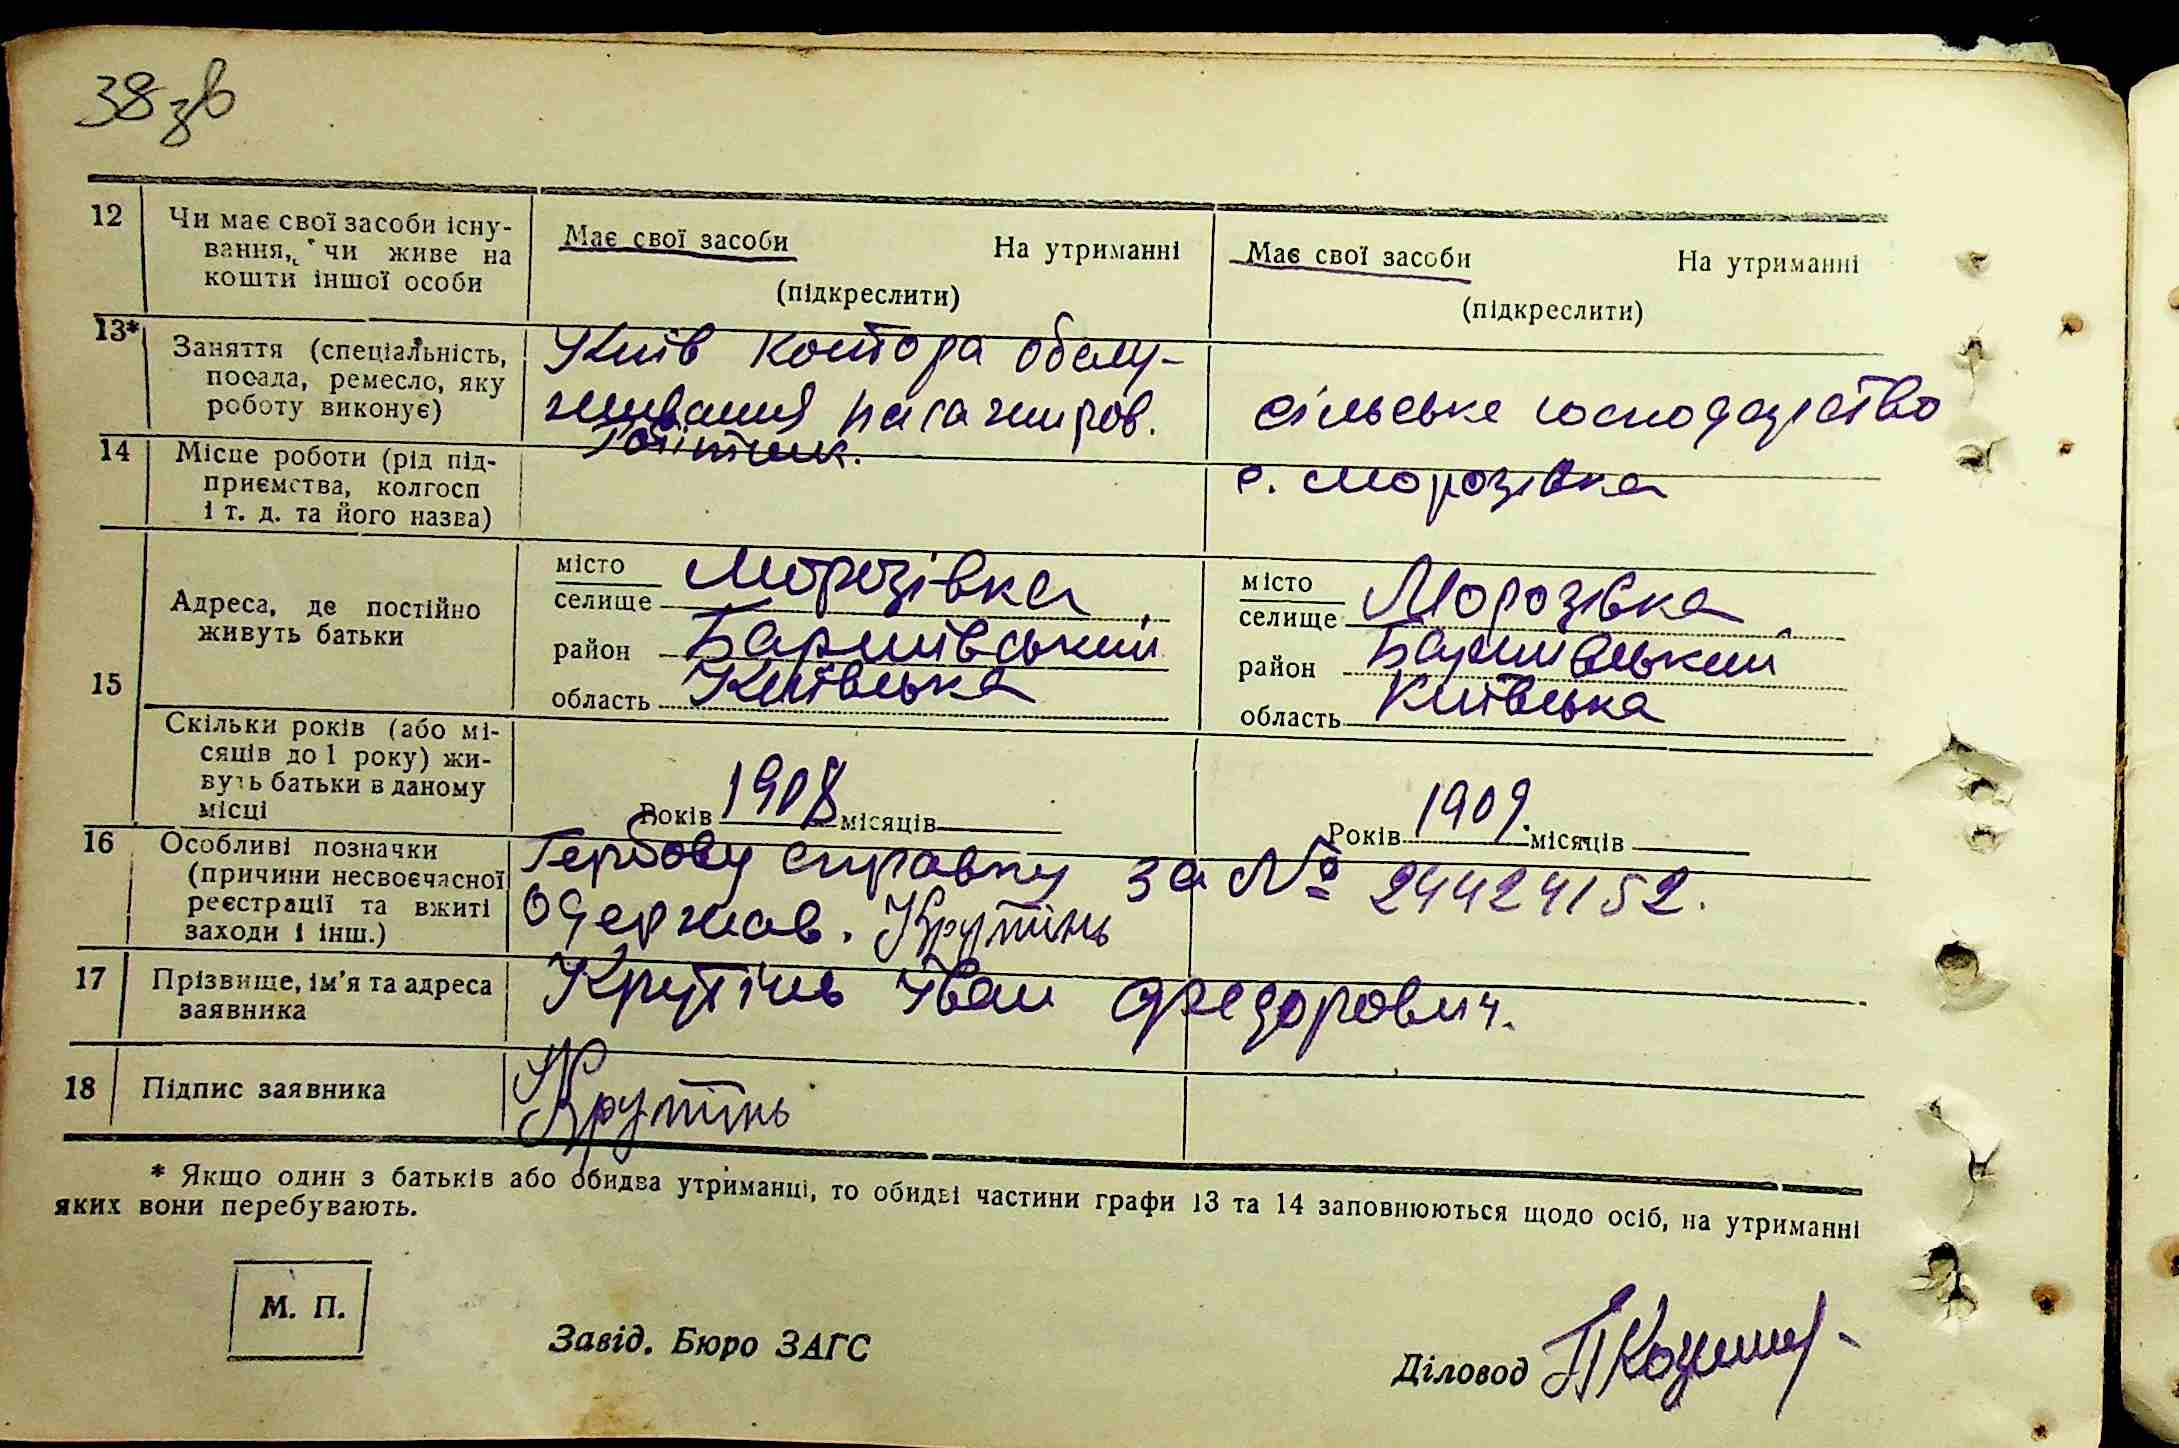 38зв
12
Чи має свої засоби існу-
вання, чи живе на
кошти іншої особи
Має свої засоби На утриманні
(підкреслити)
Має свої засоби На утриманні
(підкреслити)
13*
Заняття (спеціальність,
посада, ремесло, яку
роботу виконує)
Київ контора обслу-
живания пасажиров.
сільське господарство
14
Місце роботи (рід під-
приємства, колгосп
і т. д. та його назва)
с. Морозівка
15
Адреса, де постійно
живуть батьки
місто
селище Морозівка
район Баришівський
область Київська
місто
селище Морозівка
район Баришівський
область Київська
Скільки років (або мі-
сяців до 1 року) жи-
вуть батьки в даному
місці
Років 1908 місяців
Років 1909. місяців
16
Особливі позначки
(причини несвоєчасної
реєстрації та вжиті
заходи і інш.)
Гербову справку за № 24424152.
Одержав. Крутінь
17
Прізвище, ім'я та адреса
заявника
Крутінь Іван Федорович.
18
Підпис заявника
Крутінь
* Якщо один з батьків або обидва утриманці, то обидві частини графи 13 та 14 заповнюються щодо осіб, на утриманні
яких вони перебувають.
М. П.
Завід. Бюро ЗАГС
Діловод